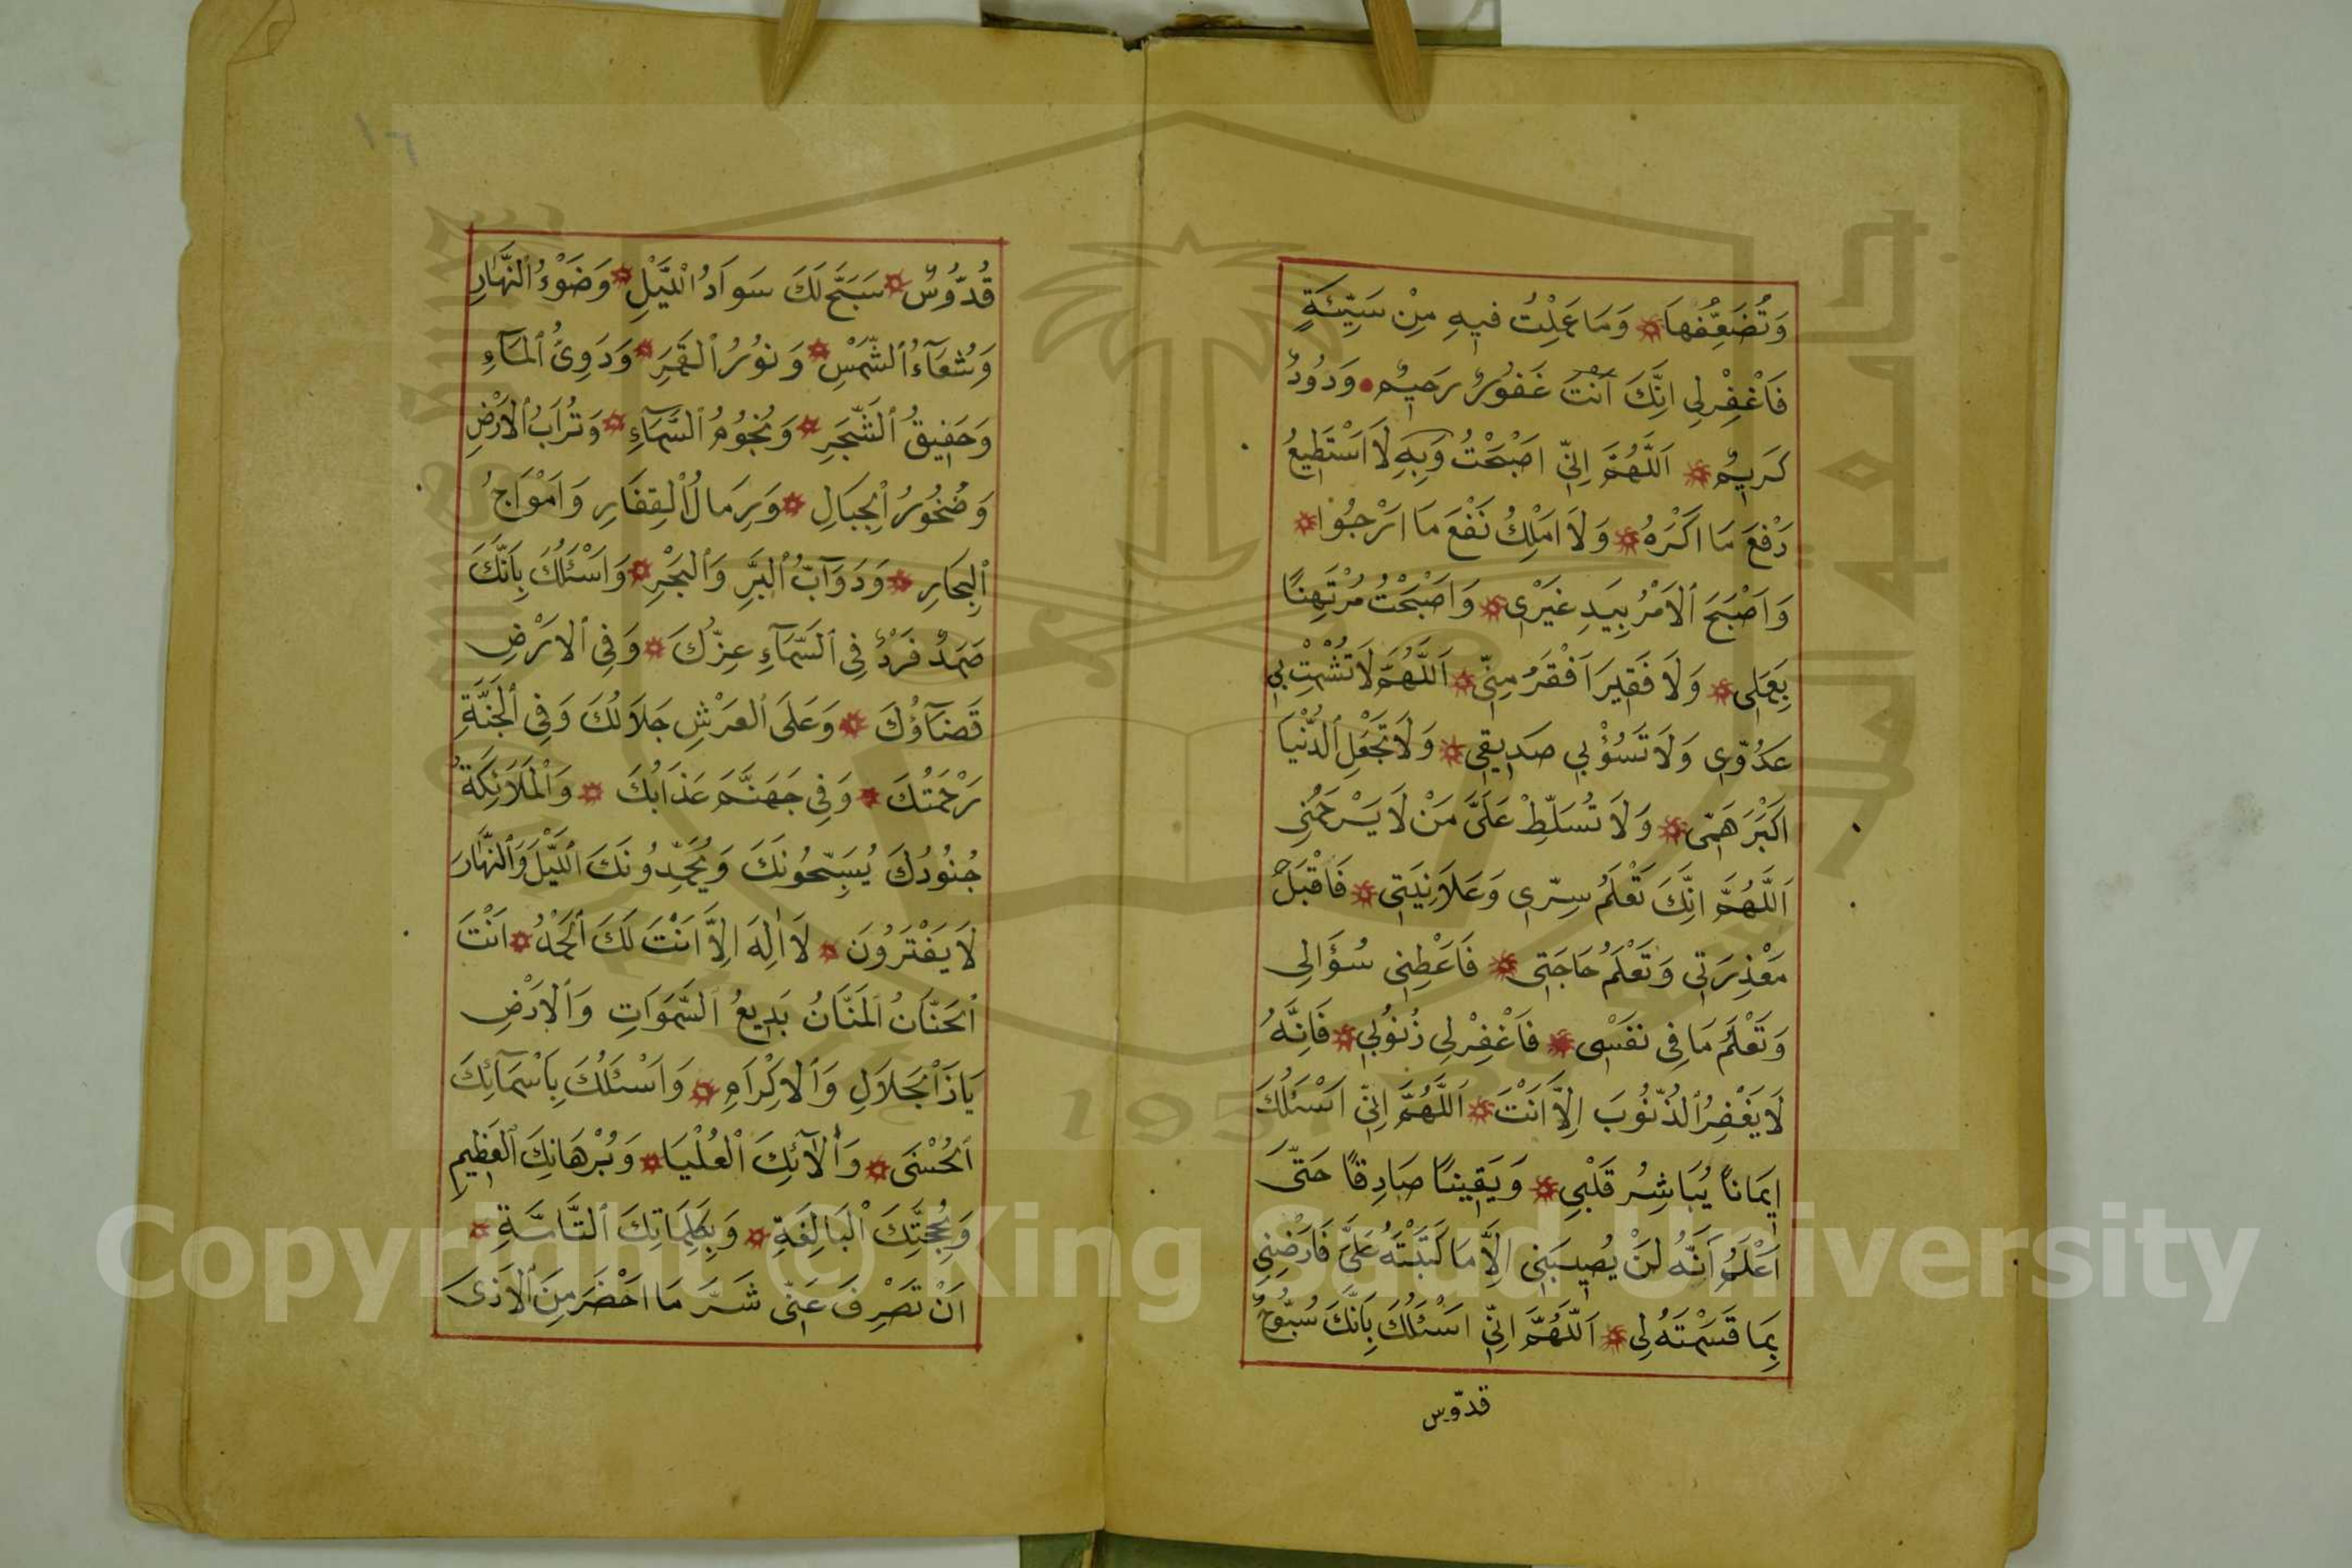 وَتُضَعِّفُهَا وَمَا عَمِلْتُ فيِهِ مِنْ سَيِّئَةٍ
فَاغْفِرْلِي اِنَّكَ اَنْتَ غَفُورٌ رَحيِمٌ وَدُودٌ
كَرِيمٌ اَللَّهُمَّ اِنِّي اَصْبَحْتُ وَبِهِ لَا اَسْتَطِيعُ
دَفْعَ مَا اَكْرَهُ وَلَا اَمْلِكُ نَفْعَ مَا اَرْجُوا
وَاَصْبَحَ الْاَمْرُ بِيَدِ غَيْرِي وَاَصْبَحْتُ مُرْتَهِنًا
بِعَمَلِي وَلَا فَقيِرَ اَفْقَرُ مِنِّي اَللَّهُمَّ لَا تُشْمِتْ بِي
عَدُوِّي وَلَا تَسُؤْ بِي صَدِيقِي وَلَا تَجْعَلِ الدُّنْيَا
اَكْبَرَ هَمِّي وَلَا تُسَلِّطْ عَلَيَّ مَنْ لَا يَرْحَمُنِي
اَللَّهُمَّ اِنَّكَ تَعْلَمُ سِرِّي وَعَلَانِيَتِي فَاقْبَلْ
مَعْذِرَتِي وَتَعْلَمُ حَاجَتِي فَاَعْطِنِي سُؤَالِي
وَتَعْلَمُ مَا فِي نَفْسِي فَاغْفِرْ لِي ذُنُوبِي فَاِنَّهُ
لَا يَغْفِرُ الذُّنُوبَ اِلَّا اَنْتَ اَللَّهُمَّ اِنِّي اَسْئَلُكَ
اِيمَانًا يُبَاشِرُ قَلْبِي وَيَقِينًا صَادِقًا حَتَّى
اَعْلَمُ اَنَّهُ لَنْ يُصِيبَنِي اِلَّا مَا كَتَبْتَهُ عَلَيَّ فَارْضِنِي
بِمَا قَسَمْتَهُ لِي اَللَّهُمَّ اِنِّي اَسْئَلُكَ بِاَنَّكَ سُبُّوحٌ
قدّوس
١٦
قُدُّوسٌ سَبَّحَ لَكَ سَوَادُ اللَّيْلِ وَضَوْءُ النَّهَارِ
وَشُعَآءُ الشَّمْسِ وَنُورُ الْقَمَرِ وَدَوِيُّ الْمَآءِ
وَحَفِيقُ الشَّجَرِ وَنُجُومُ السَّمَآءِ وَتُرَابُ الْاَرْضِ
وَصُخُورُ الْجِبَالِ وَرِمَالُ الْقِفَارِ وَاَمْوَاجُ
الْبِحَارِ وَدَوَآبُّ الْبَرِّ وَالْبَحْرِ وَاَسْئَلُكَ بِاَنَّكَ
صَمَدٌ فَرْدٌ فِي السَّمَآءِ عِزُّكَ وَفِي الْاَرْضِ
قَضَآؤُكَ وَعَلَى الْعَرْشِ جَلَالُكَ وَفِي الْجَنَّةِ
رَحْمَتُكَ وَفِي جَهَنَّمَ عَذَابُكَ وَالْمَلَائِكَةُ
جُنُودُكَ يُسَبِّحُونَكَ وَيُمَجِّدُونَكَ اللَّيْلَ وَالنَّهَارَ
لَا يَفْتَرُونَ لَا اِلٰهَ اِلَّا اَنْتَ لَكَ الْحَمْدُ اَنْتَ
الْحَنَّانُ الْمَنَّانُ بَدِيعُ السَّمَوَاتِ وَالْاَرْضِ
يَاذَا الْجَلَالِ وَالْاِكْرَامِ وَاَسْئَلُكَ بِاَسْمَآئِكَ
الْحُسْنَى وَاٰلَآئِكَ الْعُلْيَا وَبُرْهَانِكَ الْعَظِيمِ
وَبِحُجَّتِكَ الْبَالِغَةِ وَبِكَلِمَاتِكَ التَّامَّةِ
اَنْ تَصْرِفَ عَنِّي شَرَّ مَا اَحْضَرَ مِنَ الْاَذَى
Copyright © King Saud University
1957